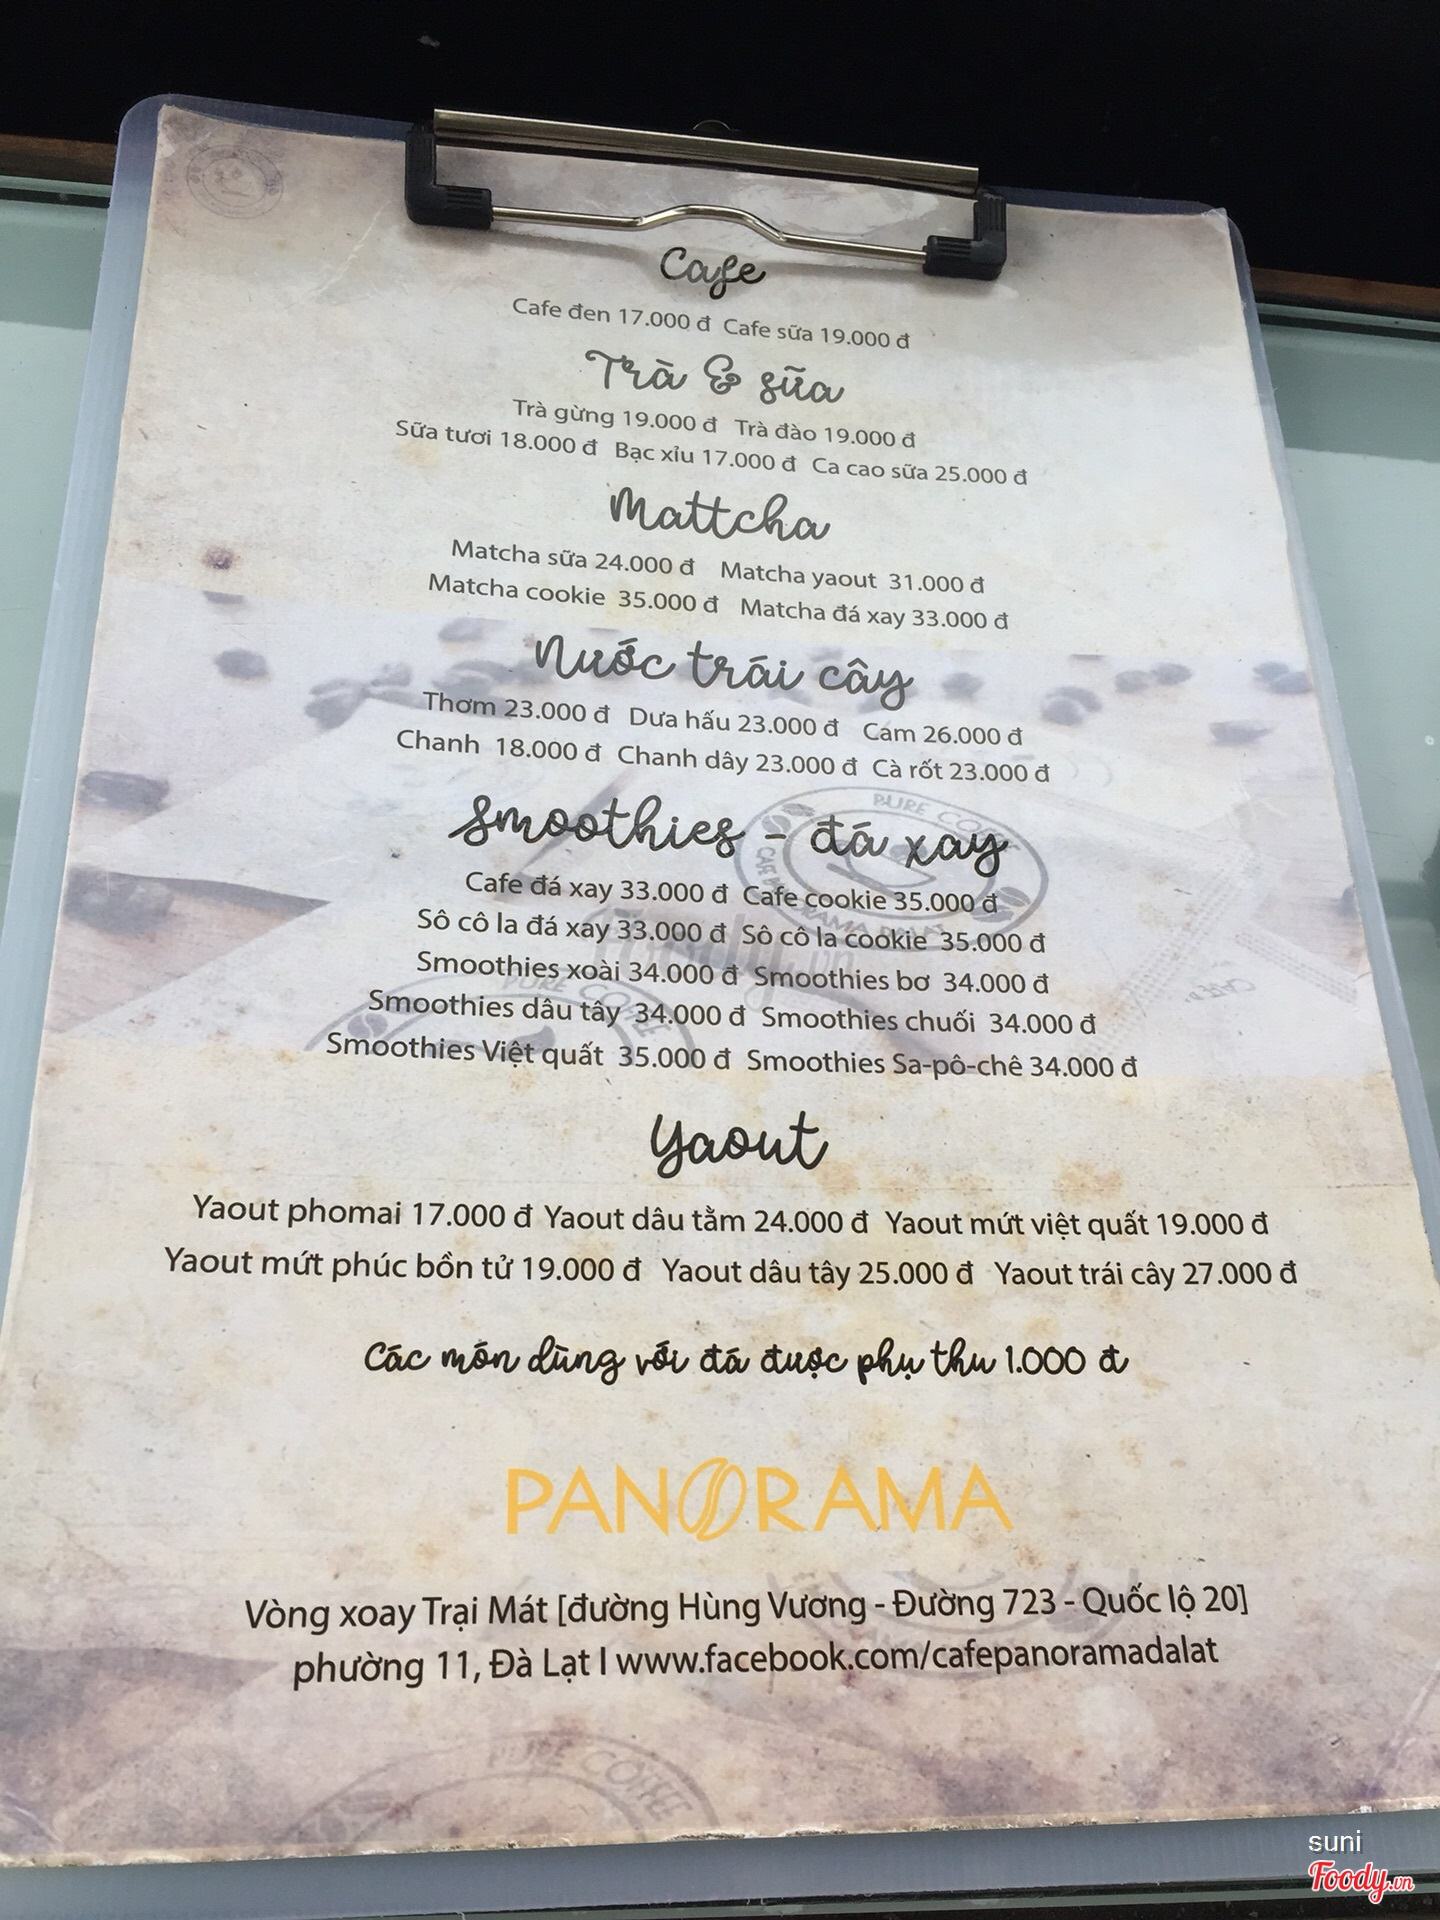 Cafe
Cafe đen 17.000 đ Cafe sữa 19.000 đ
Trà & sữa
Trà gừng 19.000 đ Trà đào 19.000 đ
Sữa tươi 18.000 đ Bạc xỉu 17.000 đ Ca cao sữa 25.000 đ
Mattcha
Matcha sữa 24.000 đ Matcha yaout 31.000 đ
Matcha cookie 35.000 đ Matcha đá xay 33.000 đ
Nước trái cây
Thơm 23.000 đ Dưa hấu 23.000 đ Cam 26.000 đ
Chanh 18.000 đ Chanh dây 23.000 đ Cà rốt 23.000 đ
Smoothies - đá xay
Cafe đá xay 33.000 đ Cafe cookie 35.000 đ
Sô cô la đá xay 33.000 đ Sô cô la cookie 35.000 đ
Smoothies xoài 34.000 đ Smoothies bơ 34.000 đ
Smoothies dâu tây 34.000 đ Smoothies chuối 34.000 đ
Smoothies Việt quất 35.000 đ Smoothies Sa-pô-chê 34.000 đ
Yaout
Yaout phomai 17.000 đ Yaout dâu tằm 24.000 đ Yaout mứt việt quất 19.000 đ
Yaout mứt phúc bồn tử 19.000 đ Yaout dâu tây 25.000 đ Yaout trái cây 27.000 đ
Các món dùng với đá được phụ thu 1.000 đ
PANORAMA
Vòng xoay Trại Mát [đường Hùng Vương - Đường 723 - Quốc lộ 20]
phường 11, Đà Lạt l www.facebook.com/cafepanoramadalat
PURE COFFEE
suni
Foody.vn